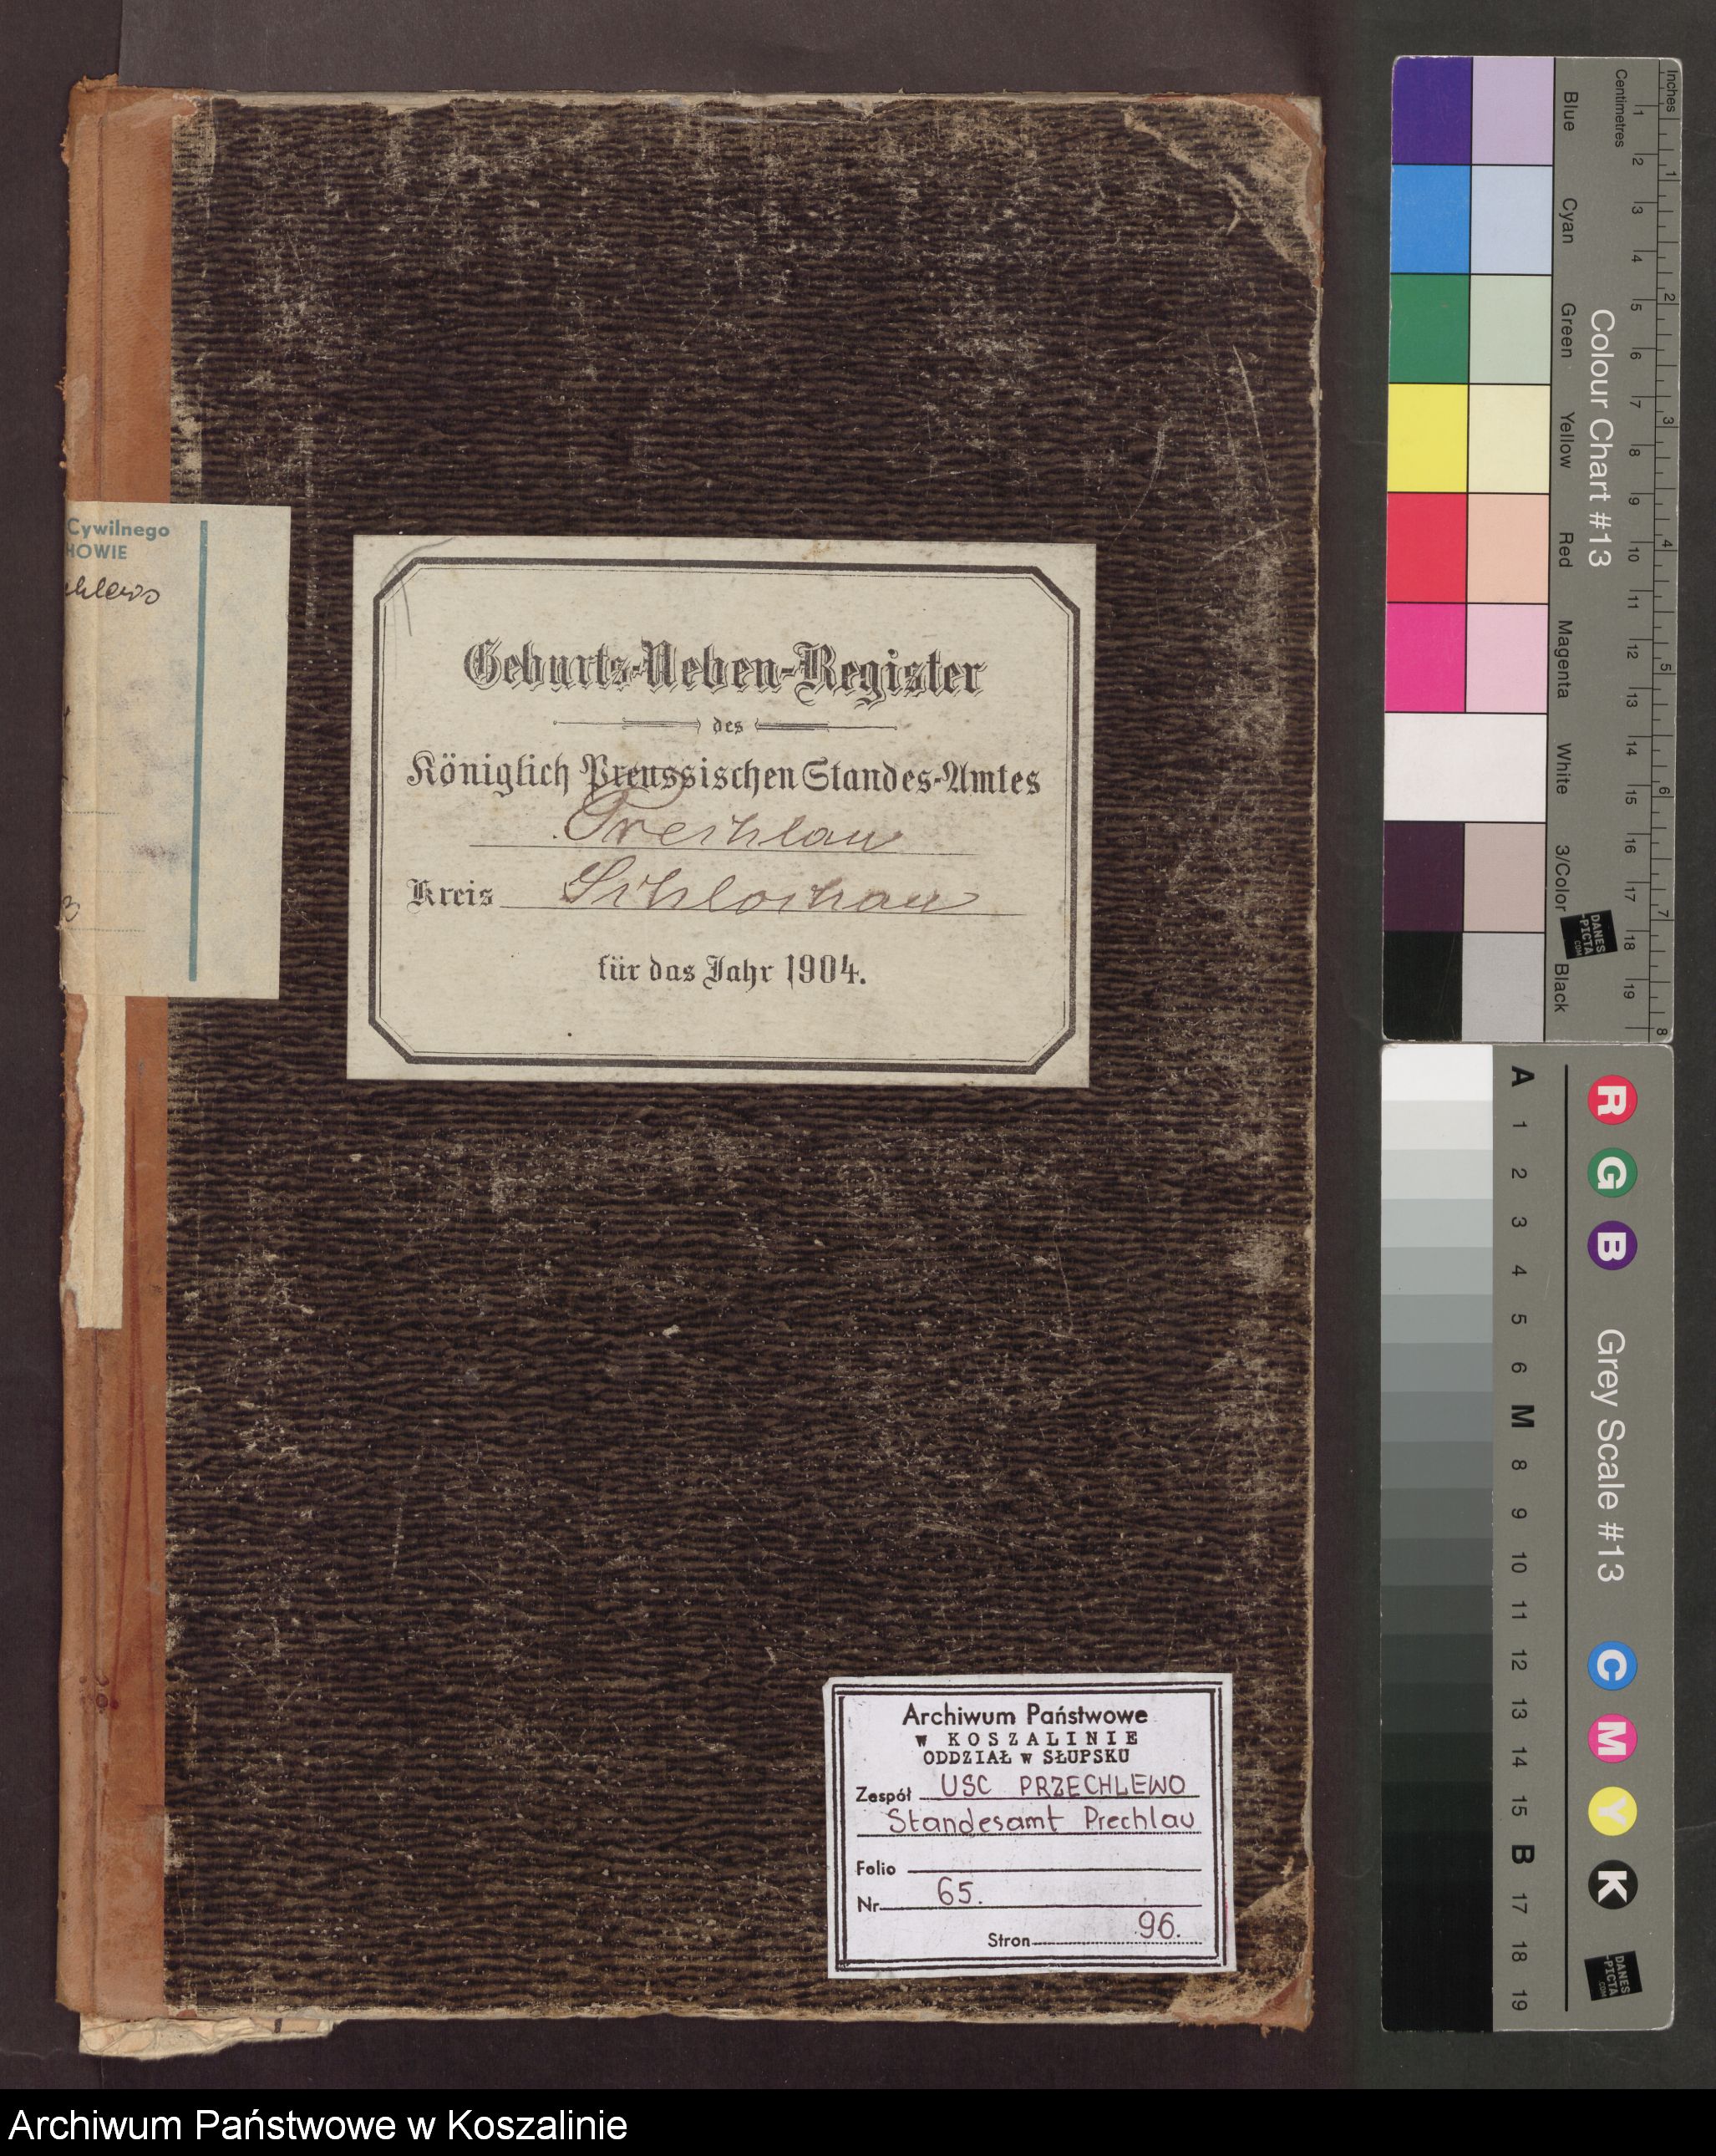 Cywilnego
HOWIE
chlewo
Geburts-Neben-Register
des
Königlich Preussischen Standes-Amtes
Prechlau
Kreis Schlochau
für das Jahr 1904.
Archiwum Państwowe
w KOSZALINIE
ODDZIAŁ w SŁUPSKU
Zespół USC PRZECHLEWO
Standesamt Prechlau
Folio
Nr 65.
Stron 96.
Inches
Centimetres
1 2 3 4 5 6 7 8
1 2 3 4 5 6 7 8 9 10 11 12 13 14 15 16 17 18 19
Colour Chart #13
Blue
Cyan
Green
Yellow
Red
Magenta
White
3/Color
Black
DANES
-PICTA
.COM
A 1 2 3 4 5 6 M 8 9 10 11 12 13 14 15 B 17 18 19
R G B
Grey Scale #13
C M Y K
DANES
-PICTA
.COM
Archiwum Państwowe w Koszalinie